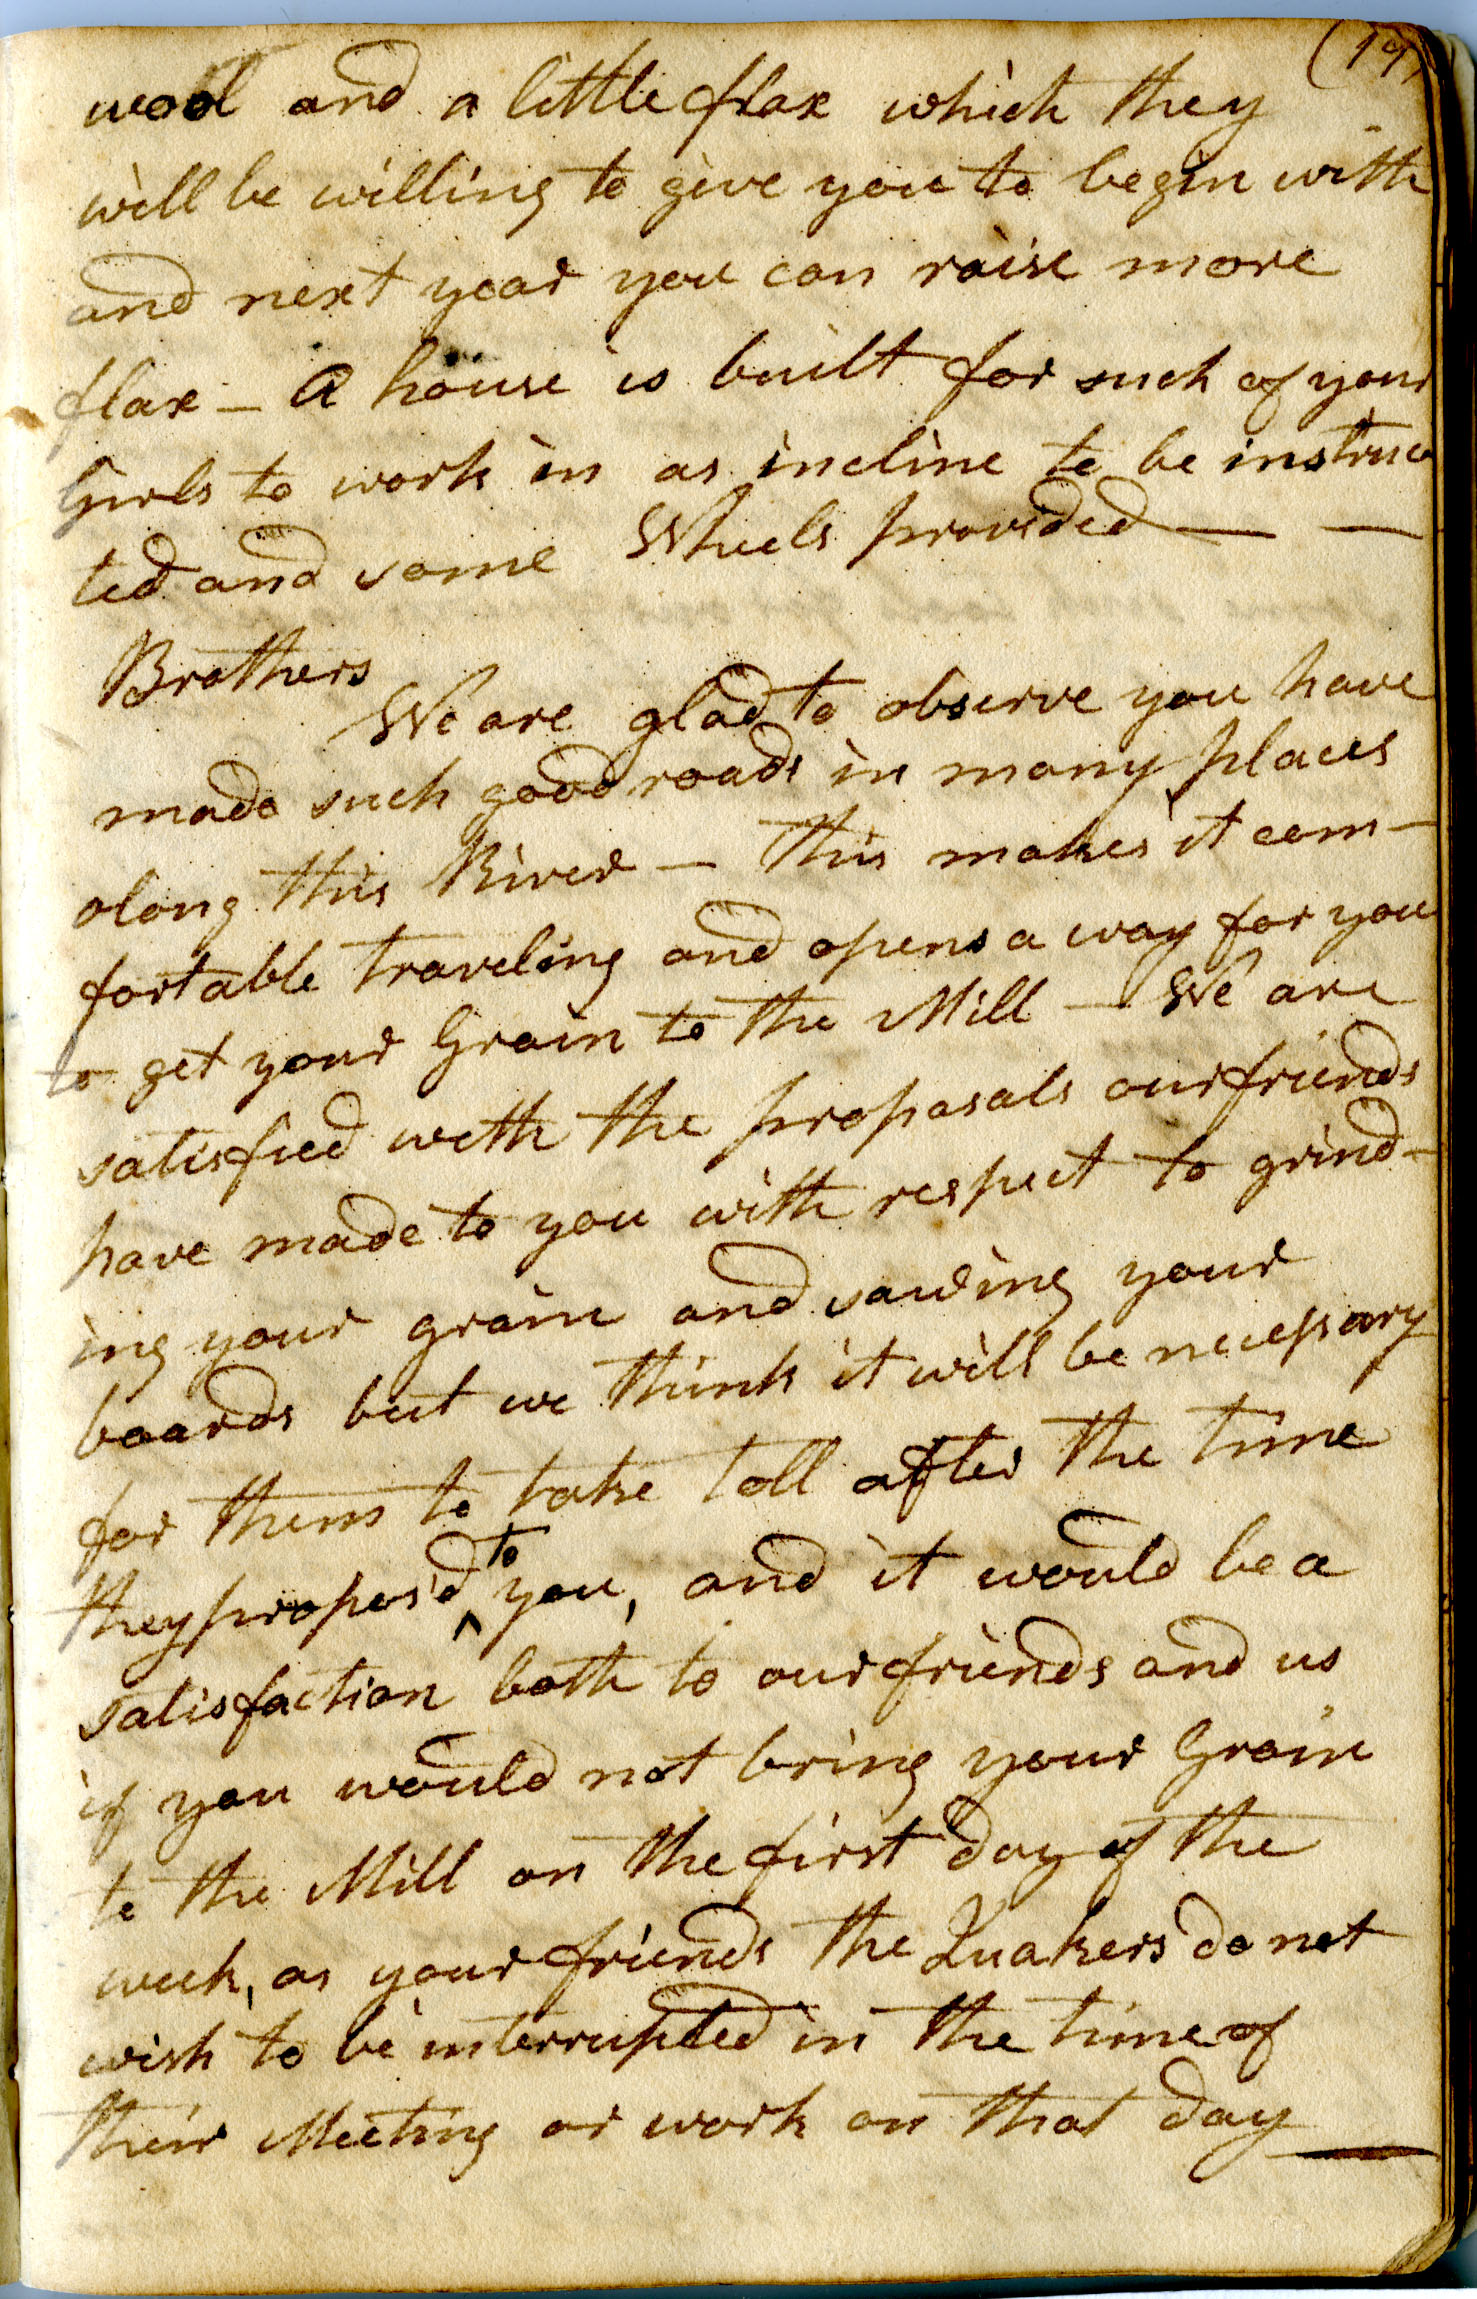 (19)
wool and a little flax which they
will be willing to give you to begin with
and next year you can raise more
flax – A house is built for such of your
Girls to work in as incline to be instruc
ted and some Wheels provided — —
Brothers
We are glad to observe you have
made such good roads in many places
along this River – This makes it com–
fortable traveling and opens a way for you
to get your Grain to the Mill – We are
satisfied with the proposals our friends
have made to you with respect to grind–
ing your grain and sawing your
boards but we think it will be necessary
for them to take toll after the time
they propos'd to you, and it would be a
satisfaction both to our friends and us
if you would not bring your Grain
to the Mill on the first day of the
week, as your friends the Quakers do not
wish to be interrupted in the time of
their Meeting or work on that day —